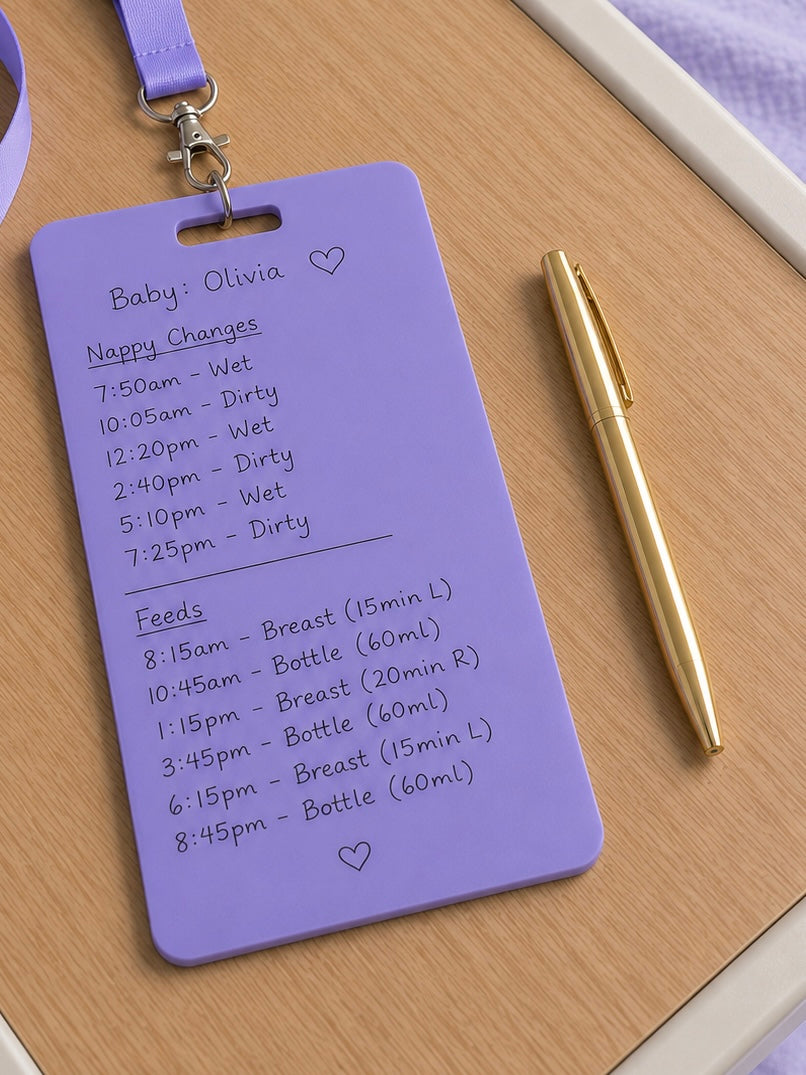 Baby: Olivia ♡
Nappy Changes
7:50am - Wet
10:05am - Dirty
12:20pm - Wet
2:40pm - Dirty
5:10pm - Wet
7:25pm - Dirty
Feeds
8:15am - Breast (15min L)
10:45am - Bottle (60ml)
1:15pm - Breast (20min R)
3:45pm - Bottle (60ml)
6:15pm - Breast (15min L)
8:45pm - Bottle (60ml)
♡